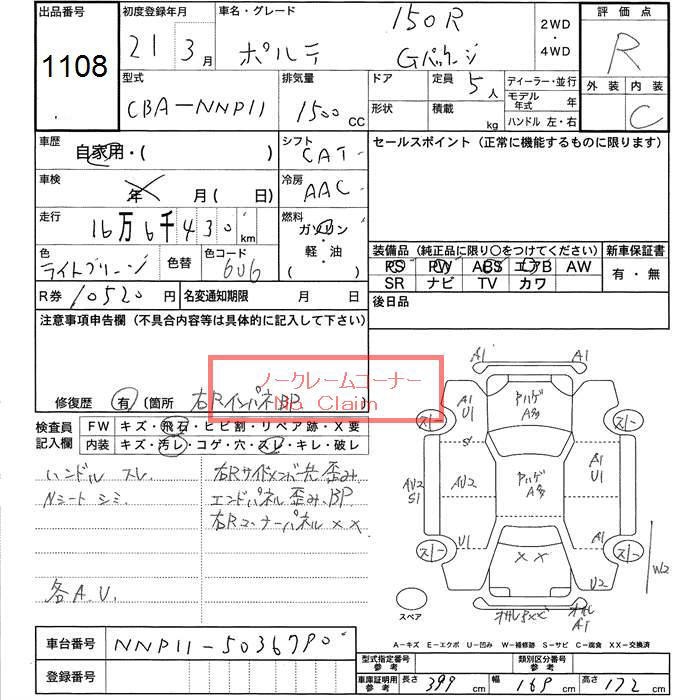 出品番号
1108
初度登録年月
21 3月
車名・グレード
150R
ポルテ Gパッケージ
2WD
・
4WD
評価点
R
外装 内装
C
型式
CBA-NNP11
排気量
1500 CC
ドア
形状
定員 5人
積載 kg
ディーラー・並行
モデル年式 年
ハンドル 左・右
車歴
自家用・( )
シフト
CAT
セールスポイント (正常に機能するものに限ります)
車検
年 月 ( 日)
冷房
AAC
走行
16万6千430km
燃料
ガソリン
・
軽・油
( )
色
ライトグリーン
色替
色コード
6U6
装備品 (純正品に限り○をつけてください)
PS PW ABS エアB AW
SR ナビ TV カワ
新車保証書
有・無
R券 10520円
名変通知期限 月 日
後日品
注意事項申告欄 (不具合内容等は具体的に記入して下さい)
ノークレームコーナー
No Claim
修復歴 有 (箇所 右Rインパネ BP )
検査員記入欄
FW キズ・飛石・ヒビ割・リペア跡・X要
内装 キズ・汚レ・コゲ・穴・スレ・キレ・破レ
ハンドル スレ
Nシート シミ
各A.U.
右Rサイドメンバー先 歪み
エンドパネル歪み、BP
右Rコーナーパネル ××
A1 A1
A1
U1
アハゲ
A多
スレー スレー
S1
AU2
S1
AU2
アハゲ
A多
A1
U1
U1
A1
スレー スレー
××
U2
W2
××
A1
スペア
車台番号 NNP11-5036790
登録番号
A-キズ E-エクボ U-凹み W-補修跡 S-サビ C-腐食 XX-交換済
型式指定番号 参考
類別区分番号 参考
車庫証明用 参考
長さ 399cm
幅 169cm
高さ 172cm